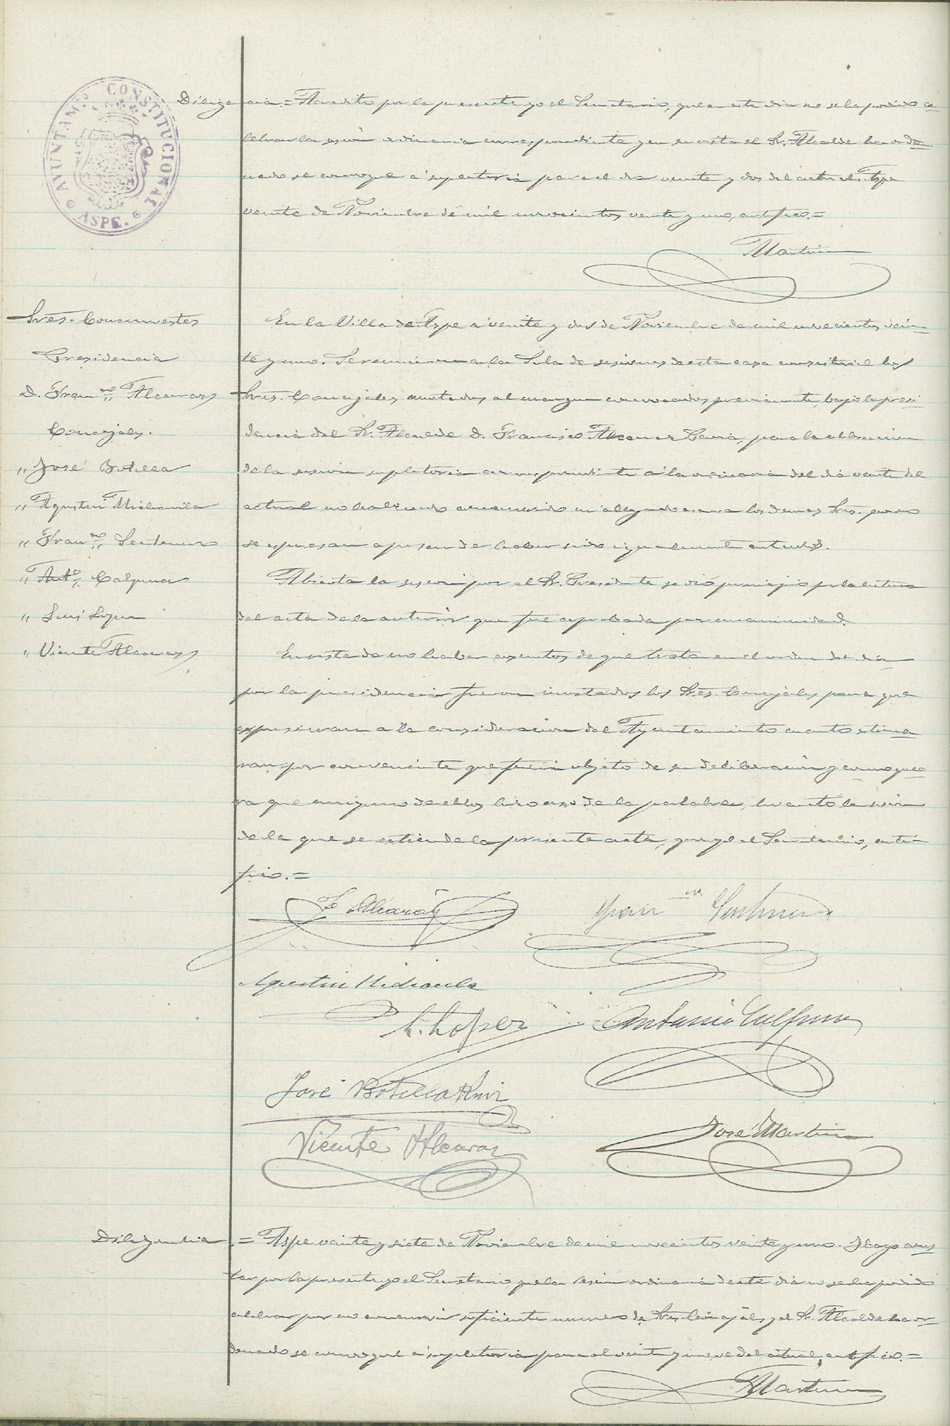 AYUNTAM.º CONSTITUCIONAL
ASPE.
Diligencia.= Acredito por la presente yo el Secretario, que en este dia no se ha podido ce
lebrar la sesión ordinaria correspondiente y en su vista el Sr. Alcalde ha orde
nado se convoque a supletoria para el dia veinte y dos del actual. Aspe
veinte de Noviembre de mil novecientos veinte y uno, certifico.=
Martinez
Sres. Concurrentes
Presidencia
D. Fran.co Alcaraz
Concejales.
" José Botella
" Agustin Mirambla
" Fran.co
" Ant.º Calpena
" Luis Lopez
" Vicente Alcaraz
En la Villa de Aspe a veinte y dos de Noviembre de mil novecientos vein
te y uno. Se reunieron en la Sala de sesiones de esta casa consistorial los
Sres. Concejales anotados al margen convocados previamente, bajo la presi
dencia del Sr. Alcalde D. Francisco Alcaraz para la celebracion
de la sesión supletoria correspondiente a la ordinaria del dia veinte del
actual no habiendo concurrido ni alegado excusa los demas Sres. que no
se expresan a pesar de haber sido igualmente citados.
Abierta la sesion por el Sr. Presidente se dió principio por la lectura
del acta de la anterior que fue aprobada por unanimidad.
En vista de no haber asuntos de que tratar en el orden del dia
por la presidencia fueron invitados los Sres. Concejales para que
expusieran a la consideracion del Ayuntamiento cuanto estima
ran por conveniente que fuera objeto de su deliberación y como quie
ra que ninguno de ellos hizo uso de la palabra, levantó la sesión
de la que se extiende la presente acta, que yo el Secretario, certi
fico.=
F. Alcaraz
Fran.co
Agustin
L. Lopez
Antonio Calpena
José Botella
José Martinez
Vicente Alcaraz
Diligencia.= Aspe veinte y siete de Noviembre de mil novecientos veinte y uno. Hago cons
tar por la presente yo el Secretario que la sesión ordinaria de este dia no se ha podido
celebrar por no concurrir suficiente numero de Sres. Concejales y el Sr. Alcalde ha or
denado se convoque a supletoria para el veinte y nueve del actual, certifico.=
Martinez